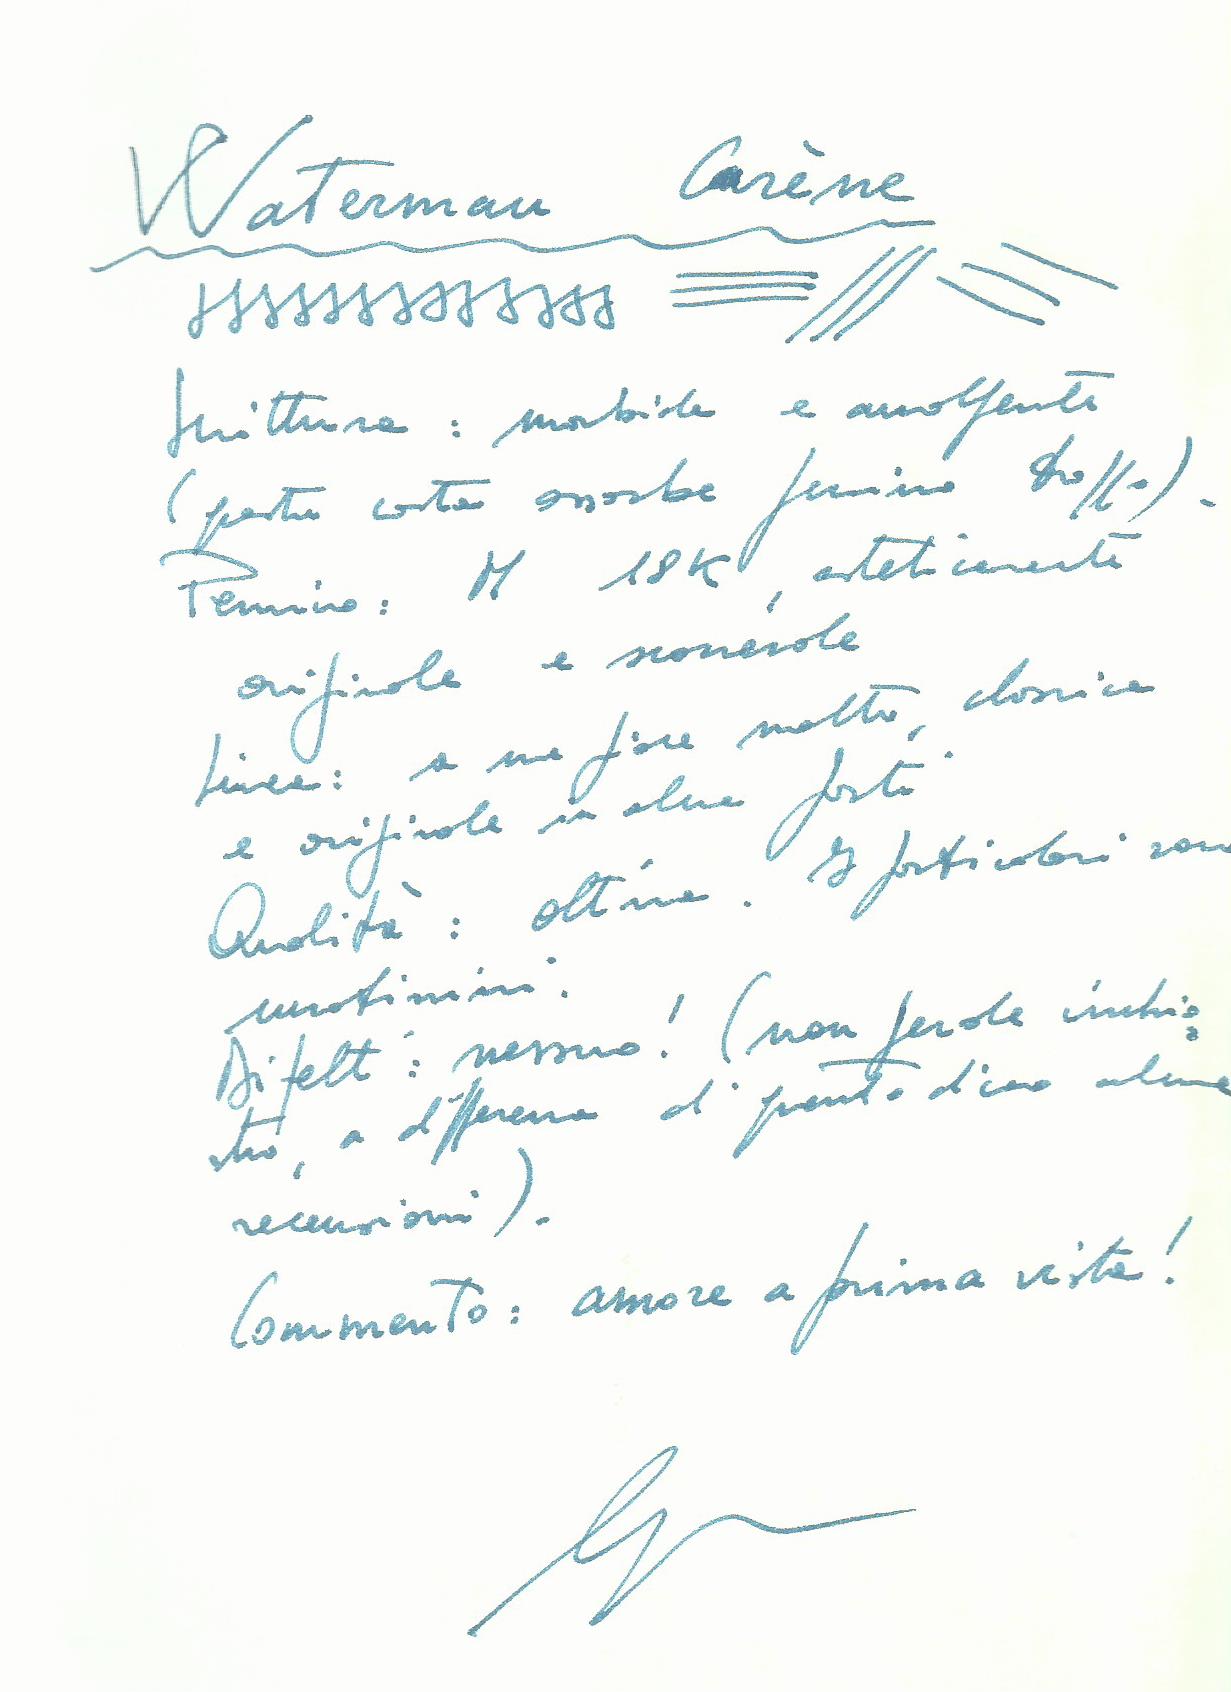 Waterman Carène
Scrittura: morbida e avvolgente
(questa carta assorbe persino troppo).
Pennino: M 18K, esteticamente
originale e scorrevole
Linea: a me piace molto, classica
e originale in alcune parti
Qualità: ottima. I particolari sono
curatissimi.
Difetti: nessuno! (non perde inchio
stro, a differenza di quanto dicono alcune
recensioni).
Commento: amore a prima vista!